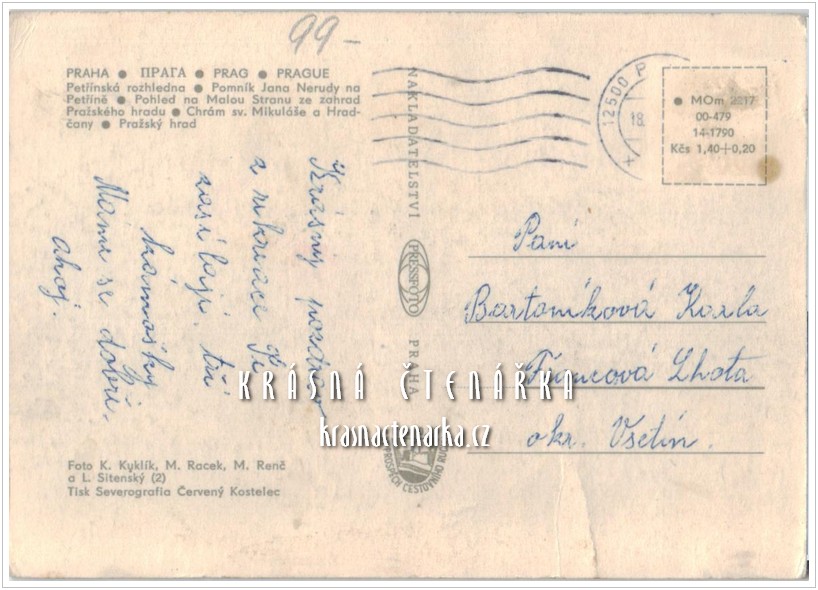 99-
PRAHA ● ПРАГА ● PRAG ● PRAGUE
Petřínská rozhledna ● Pomník Jana Nerudy na
Petříně ● Pohled na Malou Stranu ze zahrad
Pražského hradu ● Chrám sv. Mikuláše a Hrad-
čany ● Pražský hrad
Krásný pozdrav
z rekreace Ti
zasílají tři
kámošky
Máme se dobře.
ahoj.
Foto K. Kyklík, M. Racek, M. Renč
a L. Sitenský (2)
Tisk Severografia Červený Kostelec
NAKLADATELSTVÍ
PRESSFOTO
PRAHA
PROSPĚCH CESTOVNÍHO RUCHU
12500 P
18.
● MOm 2217
00-479
14-1790
Kčs 1,40+0,20
Paní
Bartoníková Karla
Francová Lhota
okr. Vsetín.
KRÁSNÁ ČTENÁŘKA
krasnactenarka.cz